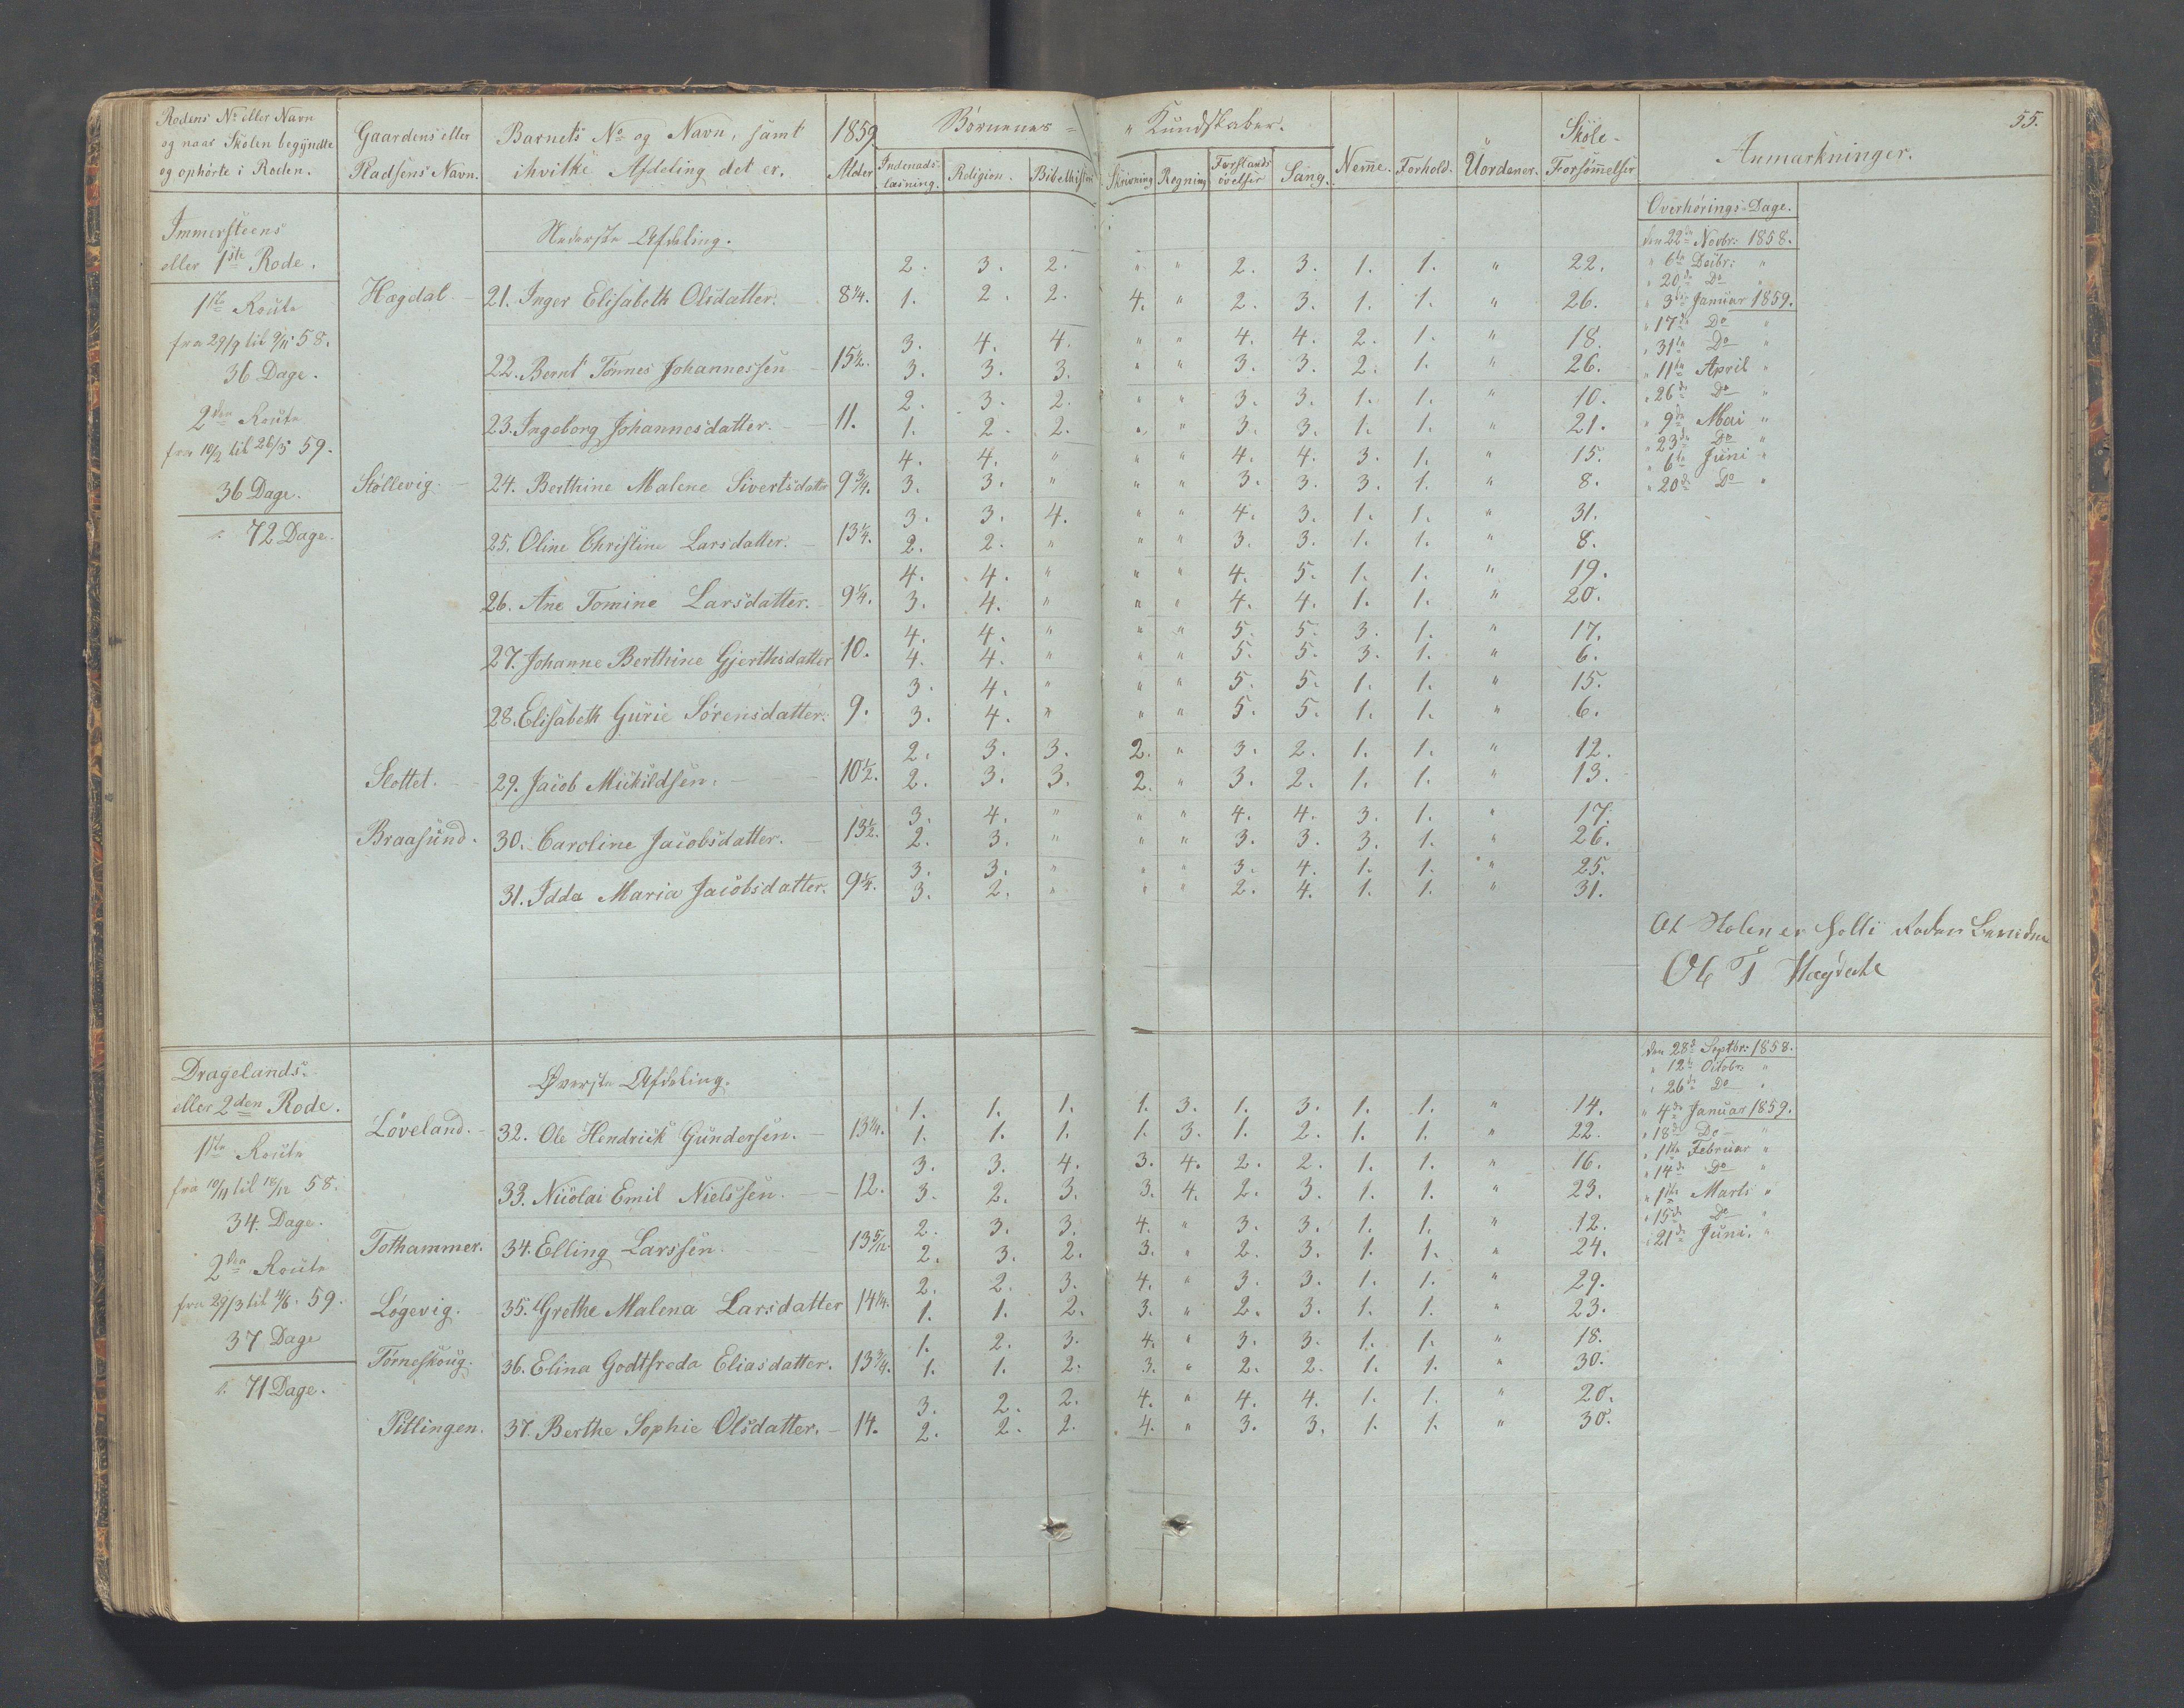 55.
Rodens No eller Navn og naar Skolen begyndte og ophørte i Roden. Gaardens eller Pladsens Navn. Barnets No og Navn, samt ihvilke Afdeling det er. 1859 Alder Børnenes Kundskaber. Indenads-læsning. Religion. Bibelhistori Skrivning Regning Forstands øvelser Sang. Nem̄e. Forhold. Uordener. Skole-Forsøm̄elser Anmærkninger.
Immersteens
eller 1ste Rode.
1ste Route
fra 29/9 til 9/11 58.
36 Dage.
2den Route
fra 10/2 til 26/3 59.
36 Dage.
72 Dage.
Nederste Afdeling.
2. 3. 2. " " 2. 3. 1. 1. " 22.
Hægdal. 21. Inger Elisabeth Olsdatter. 8 3/4. 1. 2. 2. 4. " 2. 3. 1. 1. " 26.
3. 4. 4. " " 4. 4. 2. 1. " 18.
22. Bernt Tønnes Johannessen 15 1/2. 3. 3. 3. " " 3. 3. 2. 1. " 26.
2. 3. 2. " " 3. 3. 1. 1. " 10.
23. Ingeborg Johannesdatter. 11. 1. 2. 2. " " 3. 3. 1. 1. " 21.
4. 4. " " " 4. 4. 3. 1. " 15.
Støllevig. 24. Berthine Malene Sivertsdatter 9 3/4. 3. 3. " " " 3. 3. 3. 1. " 8.
3. 3. 4. " " 4. 3. 1. 1. " 31.
25. Oline Christine Larsdatter. 13 1/4. 2. 2. " " " 3. 3. 1. 1. " 8.
4. 4. " " " 4. 5. 1. 1. " 19.
26. Ane Tomine Larsdatter. 9 1/4. 3. 4. " " " 4. 4. 1. 1. " 20.
4. 4. " " " 5. 5. 3. 1. " 17.
27. Johanne Berthine Gjerthsdatter 10. 4. 4. " " " 5. 5. 3. 1. " 6.
3. 4. " " " 5. 5. 1. 1. " 15.
28. Elisabeth Gurie Sørensdatter. 9. 3. 4. " " " 5. 5. 1. 1. " 6.
2. 3. 3. 2. " 3. 2. 1. 1. " 12.
Slottet. 29. Jacob Mickildsen. 10 1/2. 2. 3. 3. 2. " 3. 2. 1. 1. " 13.
3. 4. " " " 4. 4. 3. 1. " 17.
Braasund. 30. Caroline Jacobsdatter. 13 1/2. 2. 3. " " " 3. 3. 3. 1. " 26.
3. 3. " " " 3. 4. 1. 1. " 25.
31. Idda Maria Jacobsdatter. 9 1/4. 3. 2. " " " 2. 4. 1. 1. " 31.
Overhørings-Dage.
den 22de Novbr: 1858.
" 6te Decbr: "
" 20de Do "
" 3die Januar 1859.
" 17de Do "
" 31te Do "
" 11te April "
" 26de Do "
" 9de Mai "
" 23de Do "
" 6te Juni "
" 20de Do "
At Skolen er holt i Roden
Dragelands.
eller 2den Rode.
1ste Route
fra 10/11 til 18/12 58.
34. Dage.
2den Route
fra 29/3 til 4/6. 59.
37 Dage
71 Dage.
Øverste Afdeling.
1. 1. 1. 1. 3. 1. 3. 1. 1. " 14.
Løveland. 32. Ole Hendrick Gundersen. 13 1/4. 1. 1. 1. 1. 3. 1. 2. 1. 1. " 22.
3. 3. 4. 3. 4. 2. 2. 1. 1. " 16.
33. Nicolai Emil Nielssen. 12. 3. 2. 3. 3. 4. 2. 3. 1. 1. " 23.
2. 3. 3. 4. " 3. 3. 1. 1. " 12.
Tothammer. 34. Elling Larssen. 13 5/12. 2. 3. 2. 3. " 2. 3. 1. 1. " 24.
2. 2. 3. 4. " 3. 3. 1. 1. " 29.
Løgevig. 35. Grethe Malena Larsdatter 14 1/4. 1. 1. 2. 3. " 2. 3. 1. 1. " 23.
1. 2. 3. 4. " 3. 3. 1. 1. " 18.
Tørneskoug. 36. Elina Godtfreda Eliasdatter. 13 3/4. 1. 1. 2. 3. " 2. 2. 1. 1. " 30.
3. 2. 2. 4. " 4. 4. 1. 1. " 20.
Pitlingen. 37. Berthe Sophie Olsdatter. 14. 2. 2. 2. 4. " 3. 3. 1. 1. " 30.
den 28de Septbr: 1858.
" 12te Octobr: "
" 26de Do "
" 4de Januar 1859.
" 18de Do "
" 1ste Februar "
" 14de Do "
" 1ste Marts "
" 15de Do "
" 21de Juni. "